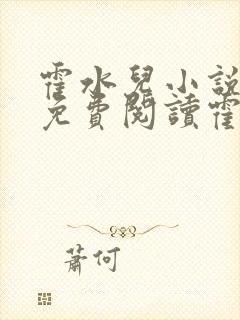 霍水兒小説
免費閱讀霍
蕭何